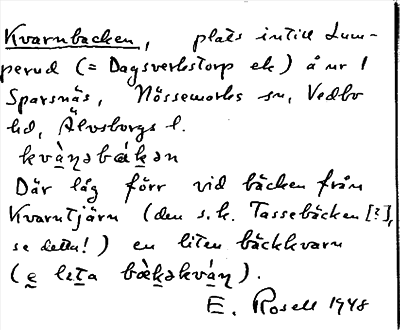 Kvarnbacken, plats intill Lum-
perud (= Dagsverkstorp ek) å nr 1
Sparsnäs, Nössemarks sn, Vedbo
hd, Älvsborgs l.
kvàṇəbákən
Där låg förr vid bäcken från
Kvarntjärn (den s.k. Tassebäcken [?],
se detta!) en liten bäckkvarn
(e lɛta bækəkváṇ).
E. Rosell 1948